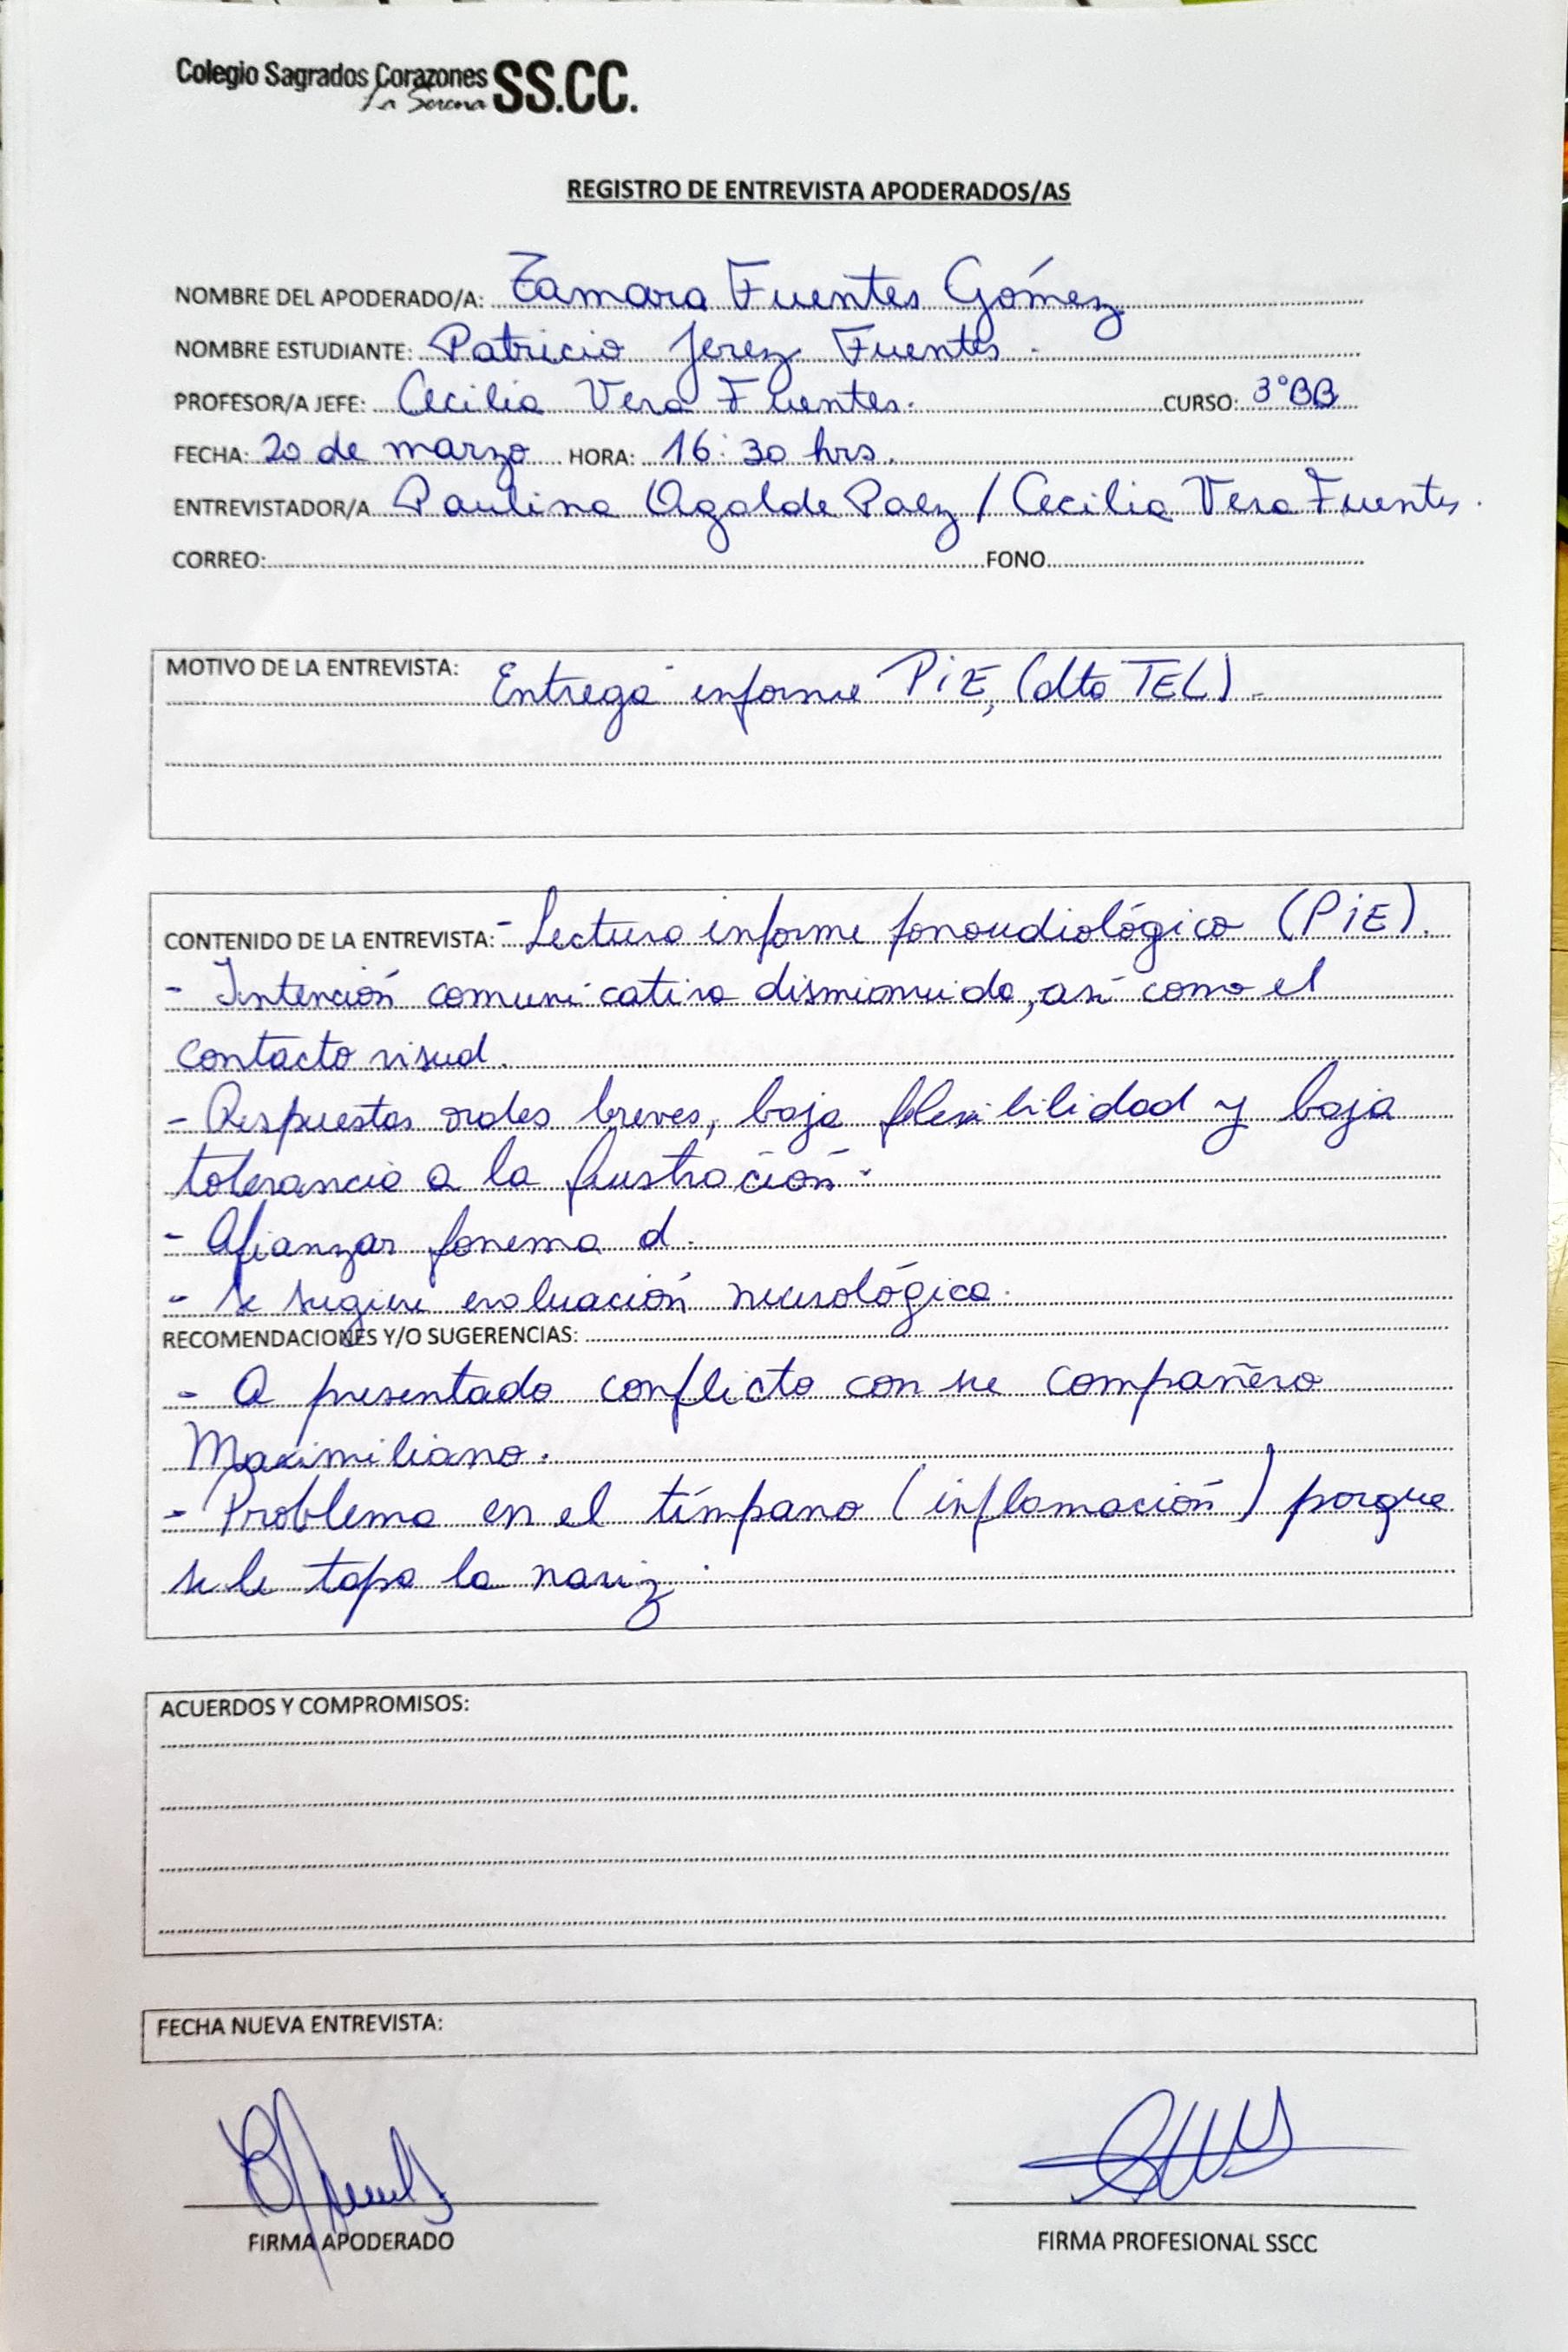 Colegio Sagrados Corazones SS.CC.
La Serena
REGISTRO DE ENTREVISTA APODERADOS/AS
NOMBRE DEL APODERADO/A: Tamara Fuentes Gómez
NOMBRE ESTUDIANTE: Patricio Jerez Fuentes.
PROFESOR/A JEFE: Cecilia Vera Fuentes. CURSO: 3°BB
FECHA: 20 de marzo HORA: 16:30 hrs.
ENTREVISTADOR/A Paulina Ogalde Paez / Cecilia Vera Fuentes.
CORREO: FONO
MOTIVO DE LA ENTREVISTA: Entrega informe PiE, (alta TEL).
CONTENIDO DE LA ENTREVISTA: - Lectura informe fonoudiológico (PiE).
- Intención comunicativa disminuida, así como el
contacto visual.
- Respuestas orales breves, baja flexibilidad y baja
tolerancia a la frustración.
- Afianzar fonema d.
- Se sugiere evaluación neurológica.
RECOMENDACIONES Y/O SUGERENCIAS:
- A presentado conflicto con su compañero
Maximiliano.
- Problema en el tímpano (inflamación) porque
se le tapa la nariz.
ACUERDOS Y COMPROMISOS:
FECHA NUEVA ENTREVISTA:
FIRMA APODERADO FIRMA PROFESIONAL SSCC